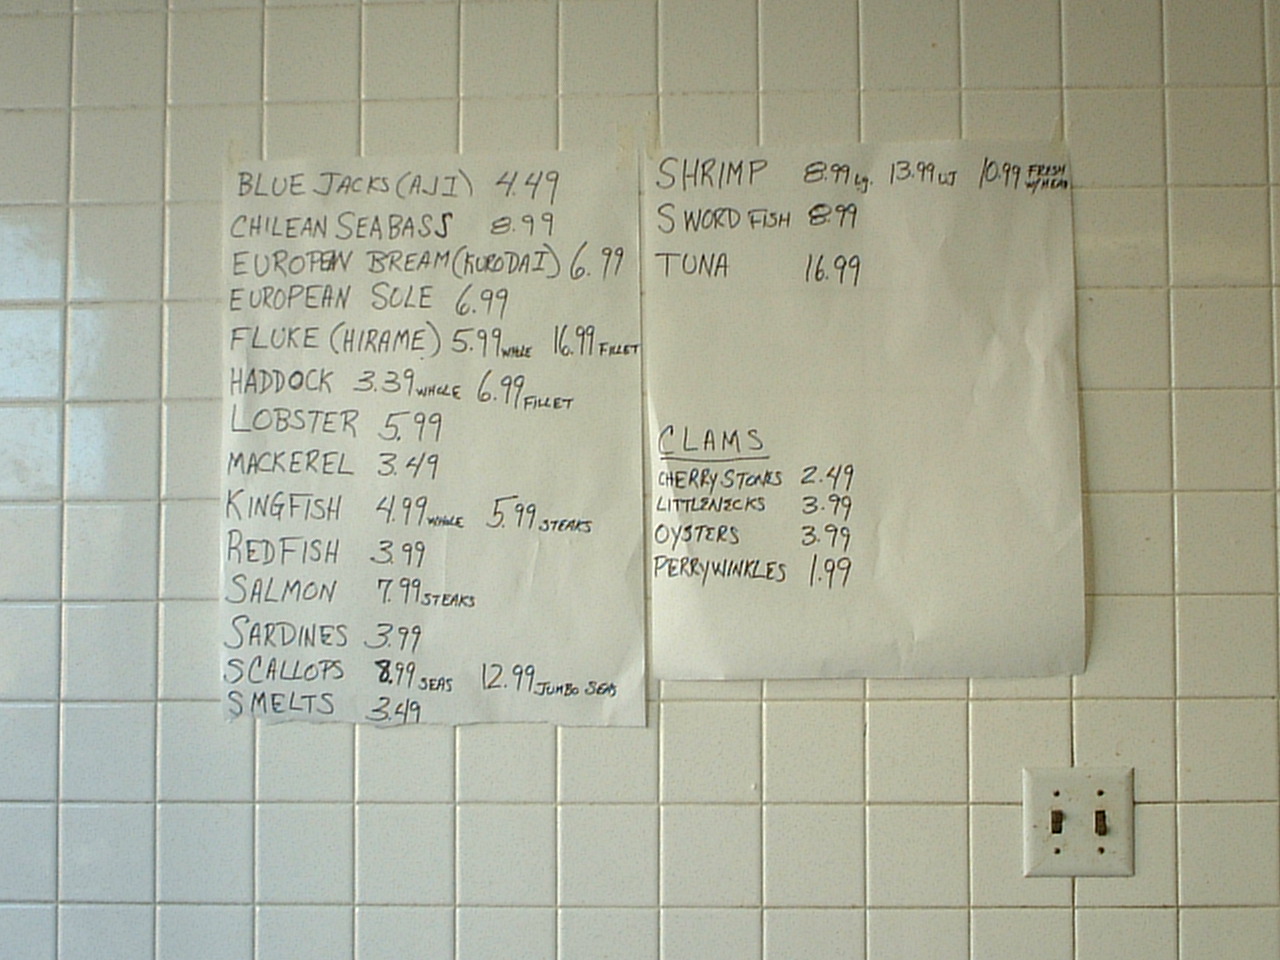 BLUE JACKS (AJI) 4.49
CHILEAN SEABASS 8.99
EUROPEAN BREAM (KURODAI) 6.99
EUROPEAN SOLE 6.99
FLUKE (HIRAME) 5.99 WHOLE 16.99 FILLET
HADDOCK 3.39 WHOLE 6.99 FILLET
LOBSTER 5.99
MACKEREL 3.49
KINGFISH 4.99 WHOLE 5.99 STEAKS
REDFISH 3.99
SALMON 7.99 STEAKS
SARDINES 3.99
SCALLOPS 8.99 SEAS 12.99 JUMBO SEAS
SMELTS 3.49
SHRIMP 8.99 Lg. 13.99 10.99 FRESH W/HEAD
SWORD FISH 8.99
TUNA 16.99
CLAMS
CHERRYSTONES 2.49
LITTLENECKS 3.99
OYSTERS 3.99
PERRYWINKLES 1.99